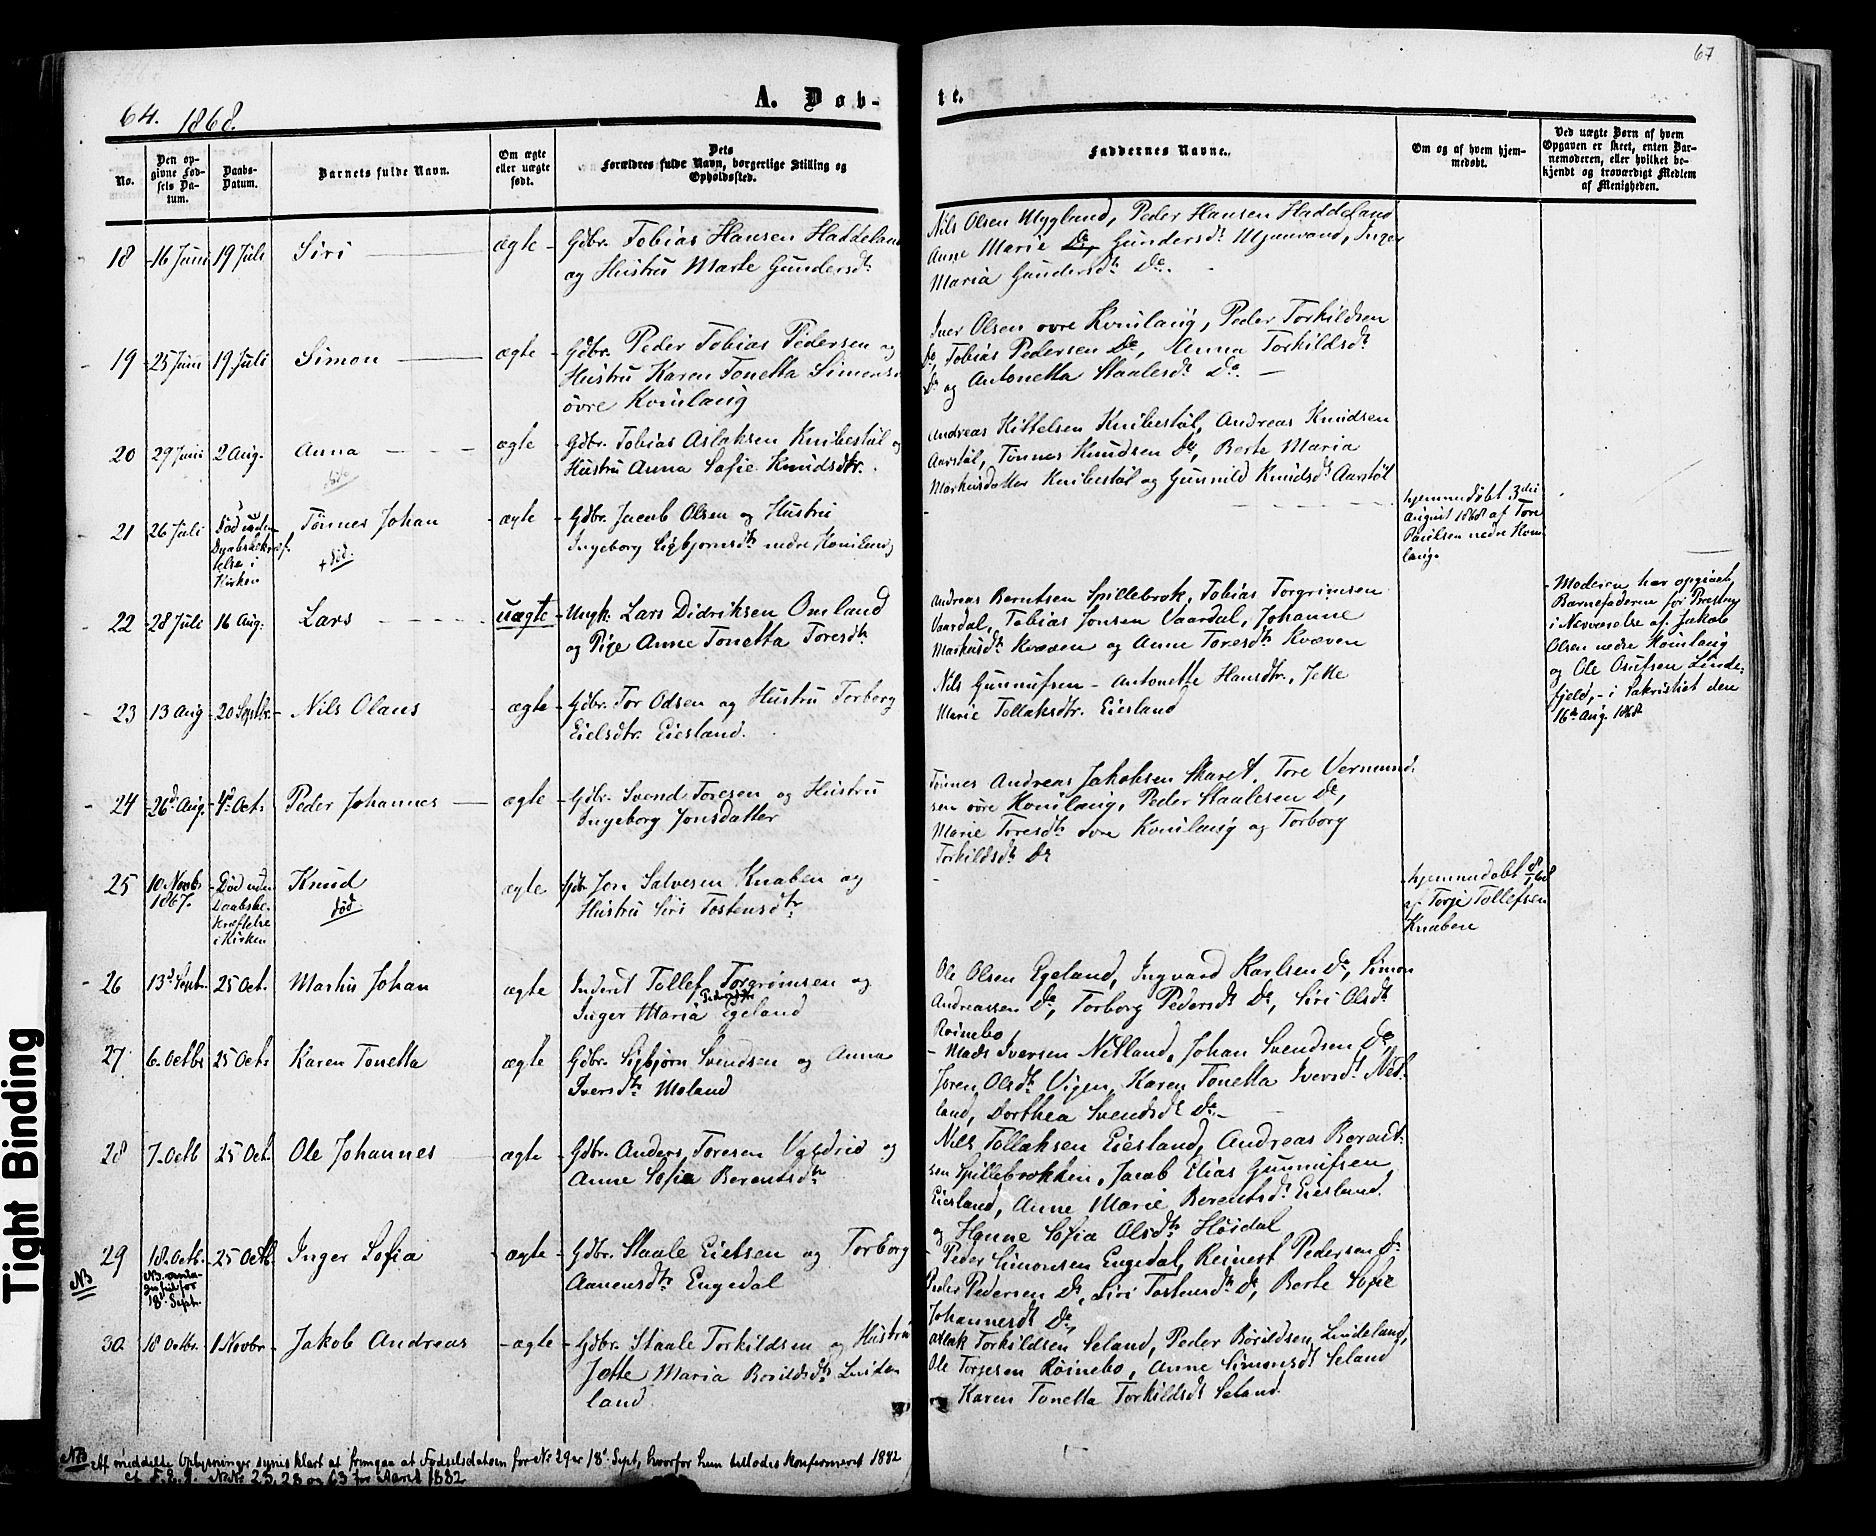 64. 1868.
A. Døb-
No.
Den op-
givne Fød-
sels Da-
tum.
Daabs-
Datum.
Barnets fulde Navn.
Om ægte
eller uægte
født.
Dets
Forældres fulde Navn, borgerlige Stilling og
Opholdssted.
18 16 Juni 19 Juli Siri ægte Gdbr. Tobias Hansen Haddeland
og Hustru Marte Gundersdtr
19 25 Juni 19. Juli Simon ægte Gdbr. Peder Tobias Pedersen og
Hustru Karen Tonetta Simonsd
øvre Kvinlaug
20 29 Juni 2 Aug. Anna ægte Gdbr. Tobias Aslaksen Knibestøl og
Hustru Anna Sofie Knudsdtr.
21 26 Juli Død uden Tønnes Johan ægte Gdbr. Jacob Olsen og Hustru
Daabsbekræf-
telse i
Kirken
+ død.
Ingeborg Sigbjørnsdtr nedre Kvinlaug
22 28 Juli 16 Aug. Lars uægte Ungk. Lars Didriksen Omland
og Pige Anne Tonetta Toresdtr
23 13 Aug 20 Septbr. Nils Olaus ægte Gdbr. Tor Odsen og Hustru Torborg
Eielsdtr. Eiesland.
24 26d Aug. 4d Oct. Peder Johannes ægte Gdbr. Svend Toresen og Hustru
Ingeborg Jonsdatter
25 10 Novb. Død uden Knud ægte Gdbr. Jon Salvesen Knaben og
1867. Daabsbe-
kræftelse
i Kirken
død
Hustru Siri Tostensdtr
26 13d Sept. 25 Oct. Markus Johan ægte Inderst Tollef Torgrimsen og
Inger Maria Pedersdtr Egeland
27 6. Octbr 25 Octb. Karen Tonetta ægte Gdbr. Sigbjørn Svendsen og Anna
Iversdtr Moland
28 7. Octb 25 Oct. Ole Johannes ægte Gdbr. Anders Toresen og
Anne Sofia Berentsdtr
29 18. Octb. 25 Octb. Inger Sofia ægte Gdbr. Staale Eielsen og Torborg
NB
18d Sept.
Aanensdtr Engedal
30 18 Octbr. 1 Novbr Jakob Andreas ægte Gdbr. Staale Torkildsen og Hustru
Jette Maria Borildsdtr Linde-
land.
NB Af meddelte Oplysninger synes klart at fremgaa at Fødselsdatoen for No 29 er 18d Sept, hvorfor hun tillodes Konfirmeret 1882
cf. No 25, 28 og 63 for Aaret 1882
Tight Binding
67
te.
Faddernes Navne.
Om og af hvem hjem-
medøbt.
Ved uægte Børn af hvem
Opgaven er skeet, enten Bar-
nemoderen, eller hvilket be-
kjendt og troværdigt Medlem
af Menigheden.
Nils Olsen Myglund, Peder Hansen Haddeland
Anne Marie Do, Gundersdt Mjaavand, Inger
Maria Gundersdtr Do.
Iver Olsen øvre Kvinlaug, Peder Torkildsen
Do, Tobias Pedersen Do, Anna Torkildsdtr
Do og Antonetta Staalesdtr Do.
Andreas Kittelsen Knibestøl, Andreas Knudsen
Aarstøl, Tønnes Knudsen Do, Berte Maria
Markusdatter Knibestøl og Gunnild Knudsdt Aarstøl
hjemmedøbt 3die
August 1868 af Tore
Paulsen nedre Kvin-
laug.
Andreas Berntsen Spillebrok, Tobias Torgrimsen
Vaardal, Tobias Jonsen Vaardal, Johanne
Markusdt Kvæven og Anne Toresdtr Kvæven
Moderen har opgivet
Barnefaderen for Presten
i Nærværelse af Jakob
Olsen nedre Kvinlaug
og Ole Osufsen Linde-
fjeld, i Sakristiet den
16de Aug. 1868
Nils Gunnufsen Antonette Hansdtr., Jette
Marie Tollaksdtr. Eiesland
Tønnes Andreas Jakobsen Skaret, Tore Vermund-
sen øvre Kvinlaug, Peder Staalesen Do,
Marie Toresdtr øvre Kvinlaug og Torborg
Torkildsdt Do
hjemmedøbt 8/1 68
af Torje Tollefsen
Knaben
Ole Olsen Egeland, Ingvard Karlsen Do, Simon
Andreassen Do, Torborg Pedersdt Do, Siri Olsdt
Roinebo
Mads Iversen Netland, Johan Svendsen Do,
Joren Olsdtr Vigen, Karen Tonetta Iversdt Net-
land, Dorthea Svendsdt Do.
Nils Tollaksen Eiesland, Andreas Berent-
sen Spillebrokken, Jacob Elias Gunnufsen
Eiesland, Anne Marie Berentsdt Eiesland.
og Hanne Sofia Olsdtr Høidal
Peder Simonsen Engedal, Reinert Pedersen Do
Peder Pedersen Do, Siri Tostensdt Do, Berte Sofie
Johannesdt Do,
Aslak Torkildsen Seland, Peder Borildsen Lindeland,
Ole Torjesen Røinebo, Anne Simonsdt Seland
og Karen Tonetta Torkildsdt Seland.